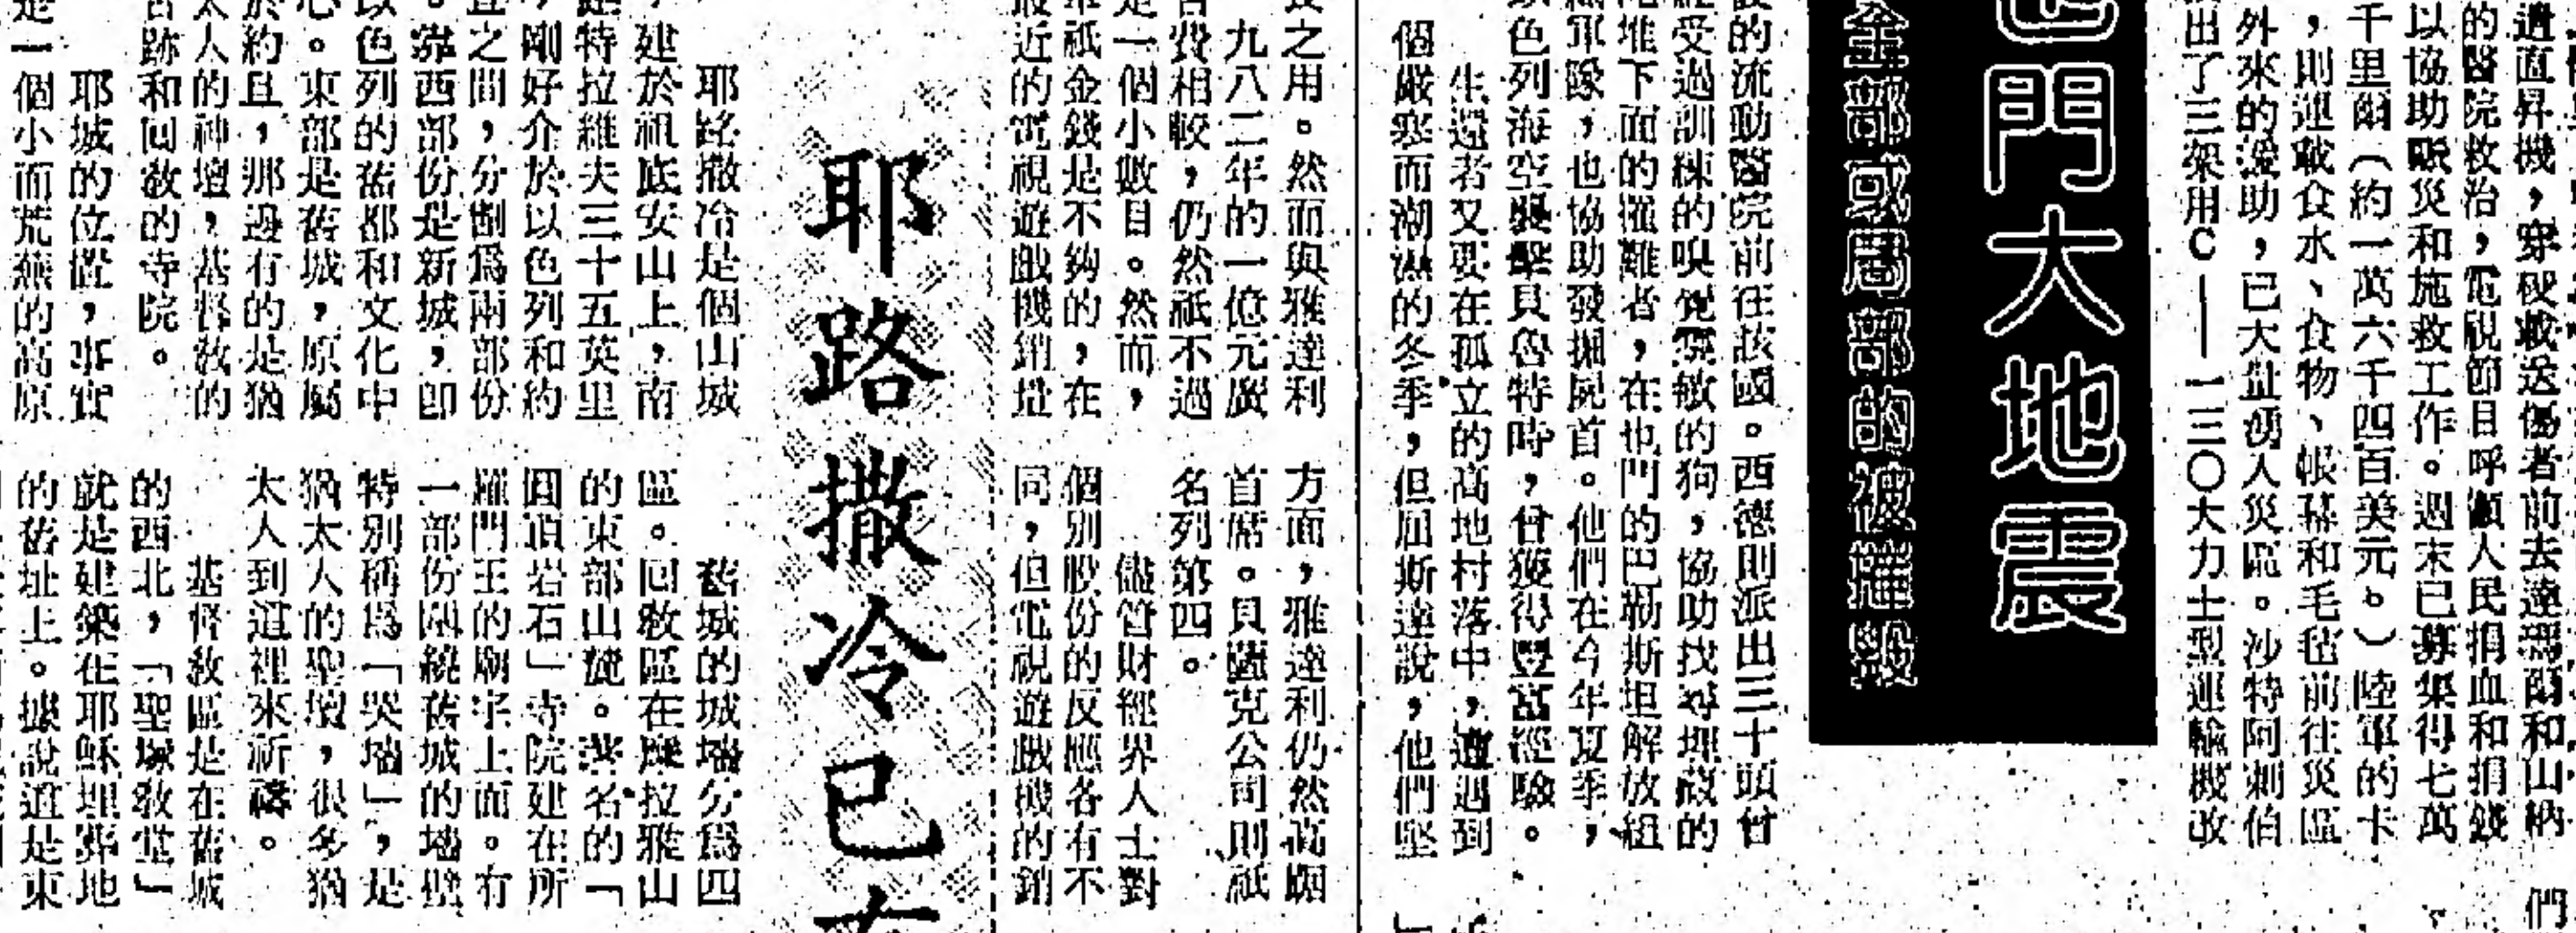 遣直昇機，穿梭載送傷者前去達瑪爾和山納
的醫院救治，電視節目呼籲人民捐血和捐錢
以協助賑災和施救工作。週末已募集得七萬
千里爾（約一萬六千四百美元。）陸軍的卡
，則運載食水、食物、帳幕和毛毡前往災區
外來的援助，已大量湧入災區。沙特阿剌伯
出了三架用C——一三〇大力士型運輸機改
們
門大地震
全部或局部的被摧毀
的流動醫院前往該國。西德則派出三十頭曾
受過訓練的嗅覺靈敏的狗，協助找尋埋藏的
堆下面的罹難者，在也門的巴勒斯坦解放組
軍隊，也協助發掘屍首。他們在今年夏季，
色列海空襲擊貝魯特時，曾獲得豐富經驗。
生還者又要在孤立的高地村落中，遭遇到
個嚴寒而潮濕的冬季，但屈斯達說，他們堅
之用。然而與雅達利
九八二年的一億元廣
費相較，仍然祇不過
是一個小數目。然而，
祇金錢是不夠的，在
最近的電視遊戲機銷
方面，雅達利仍然高踞
首席。貝薩克公司則祇
名列第四。
儘管財經界人士對
個別股份的反應各有不
同，但電視遊戲機的銷
耶路撒冷已有
耶路撒冷是個山城
，建於祖底安山上，南
特拉維夫三十五英里
，剛好介於以色列和約
且之間，分割為兩部份
。靠西部份是新城，即
以色列的舊都和文化中
心。東部是舊城，原屬
於約且，那邊有的是猶
太人的神壇，基督教的
古跡和回教的寺院。
耶城的位置，事實
是一個小而荒蕪的高原
舊城的城墻分為四
區。回教區在摩拉雅山
的東部山麓。著名的「
圓頂岩石」寺院建在所
羅門王的廟宇上面。有
一部份圍繞舊城的墻壁
特別稱為「哭墻」，是
猶太人的聖壇，很多猶
太人到這裡來祈禱。
基督教區是在舊城
的西北，「聖塚教堂」
就是建築在耶穌埋葬地
的舊址上。據說這是東